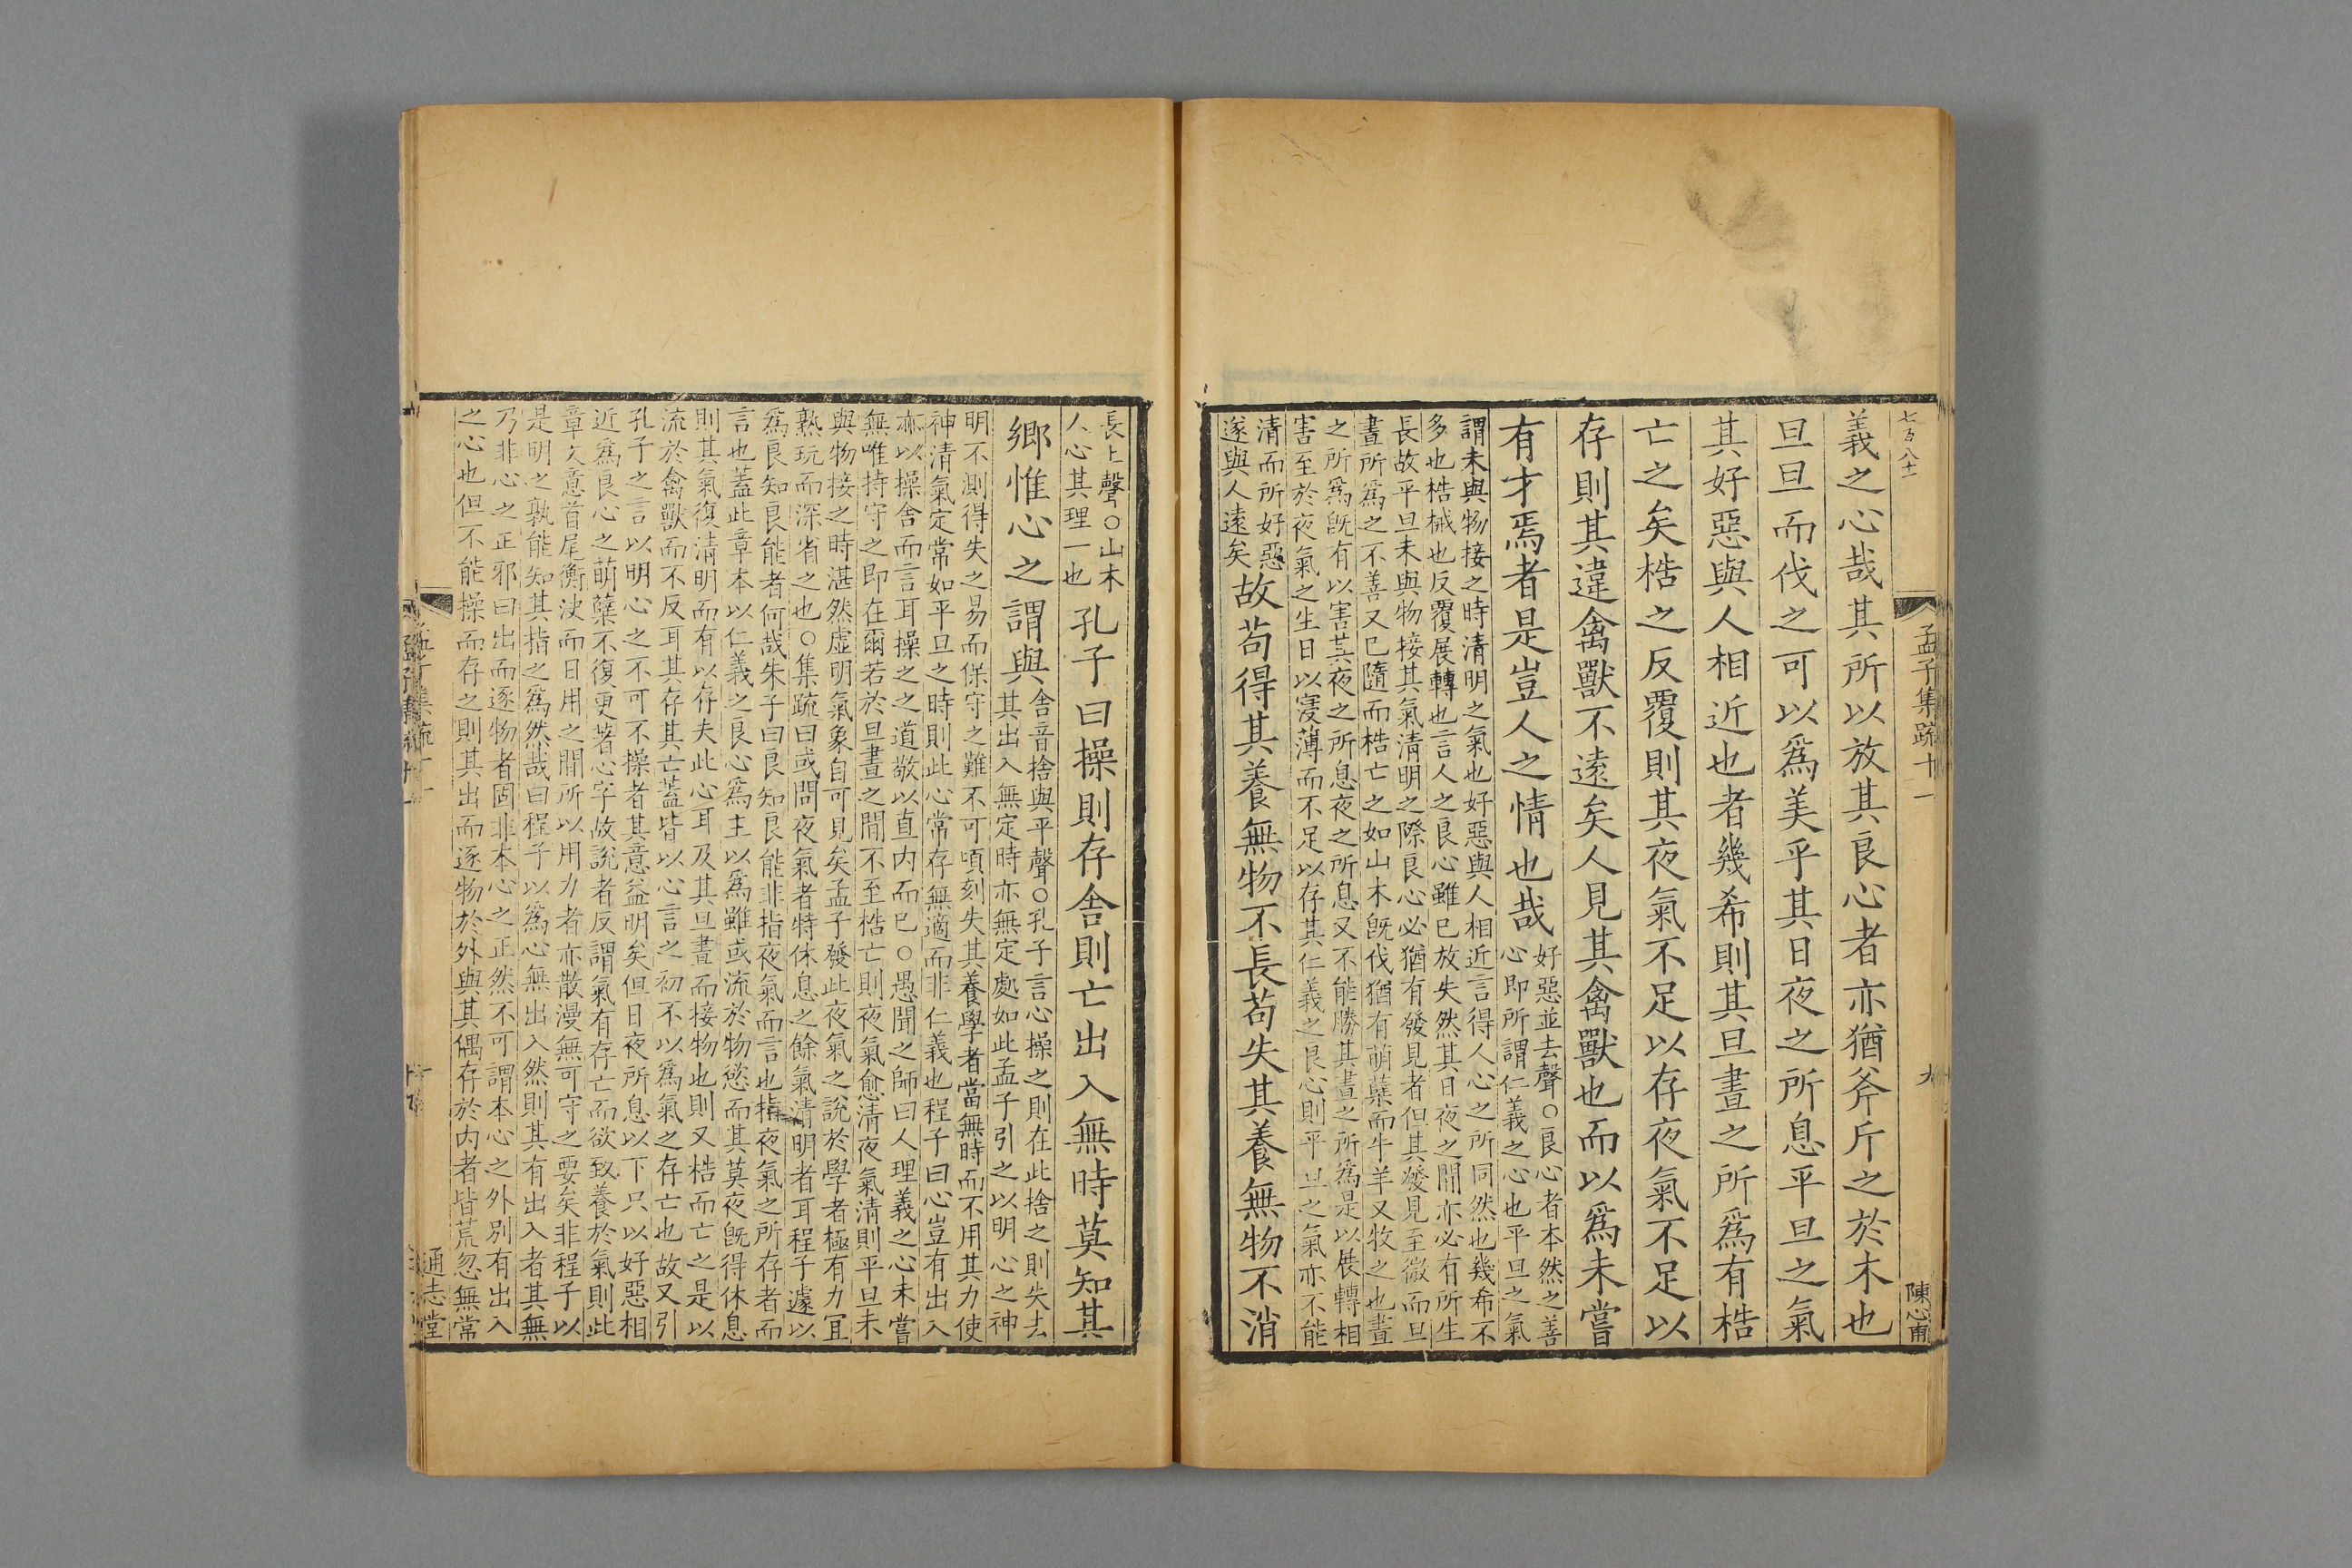 七百八十一
孟子集疏十一
九
陳心甫
義之心哉其所以放其良心者亦猶斧斤之於木也
旦旦而伐之可以爲美乎其日夜之所息平旦之氣
其好惡與人相近也者幾希則其旦晝之所爲有梏
亡之矣梏之反覆則其夜氣不足以存夜氣不足以
存則其違禽獸不遠矣人見其禽獸也而以爲未嘗
有才焉者是豈人之情也哉
好惡並去聲○良心者本然之善
心即所謂仁義之心也平旦之氣
謂未與物接之時清明之氣也好惡與人相近言得人心之所同然也幾希不
多也梏械也反覆展轉也言人之良心雖已放失然其日夜之間亦必有所生
長故平旦未與物接其氣清明之際良心必猶有發見者但其發見至微而旦
晝所爲之不善又已隨而梏亡之如山木旣伐猶有萌蘖而牛羊又牧之也晝
之所爲旣有以害其夜之所息夜之所息又不能勝其晝之所爲是以展轉相
害至於夜氣之生日以寖薄而不足以存其仁義之良心則平旦之氣亦不能
清而所好惡
遂與人遠矣
故苟得其養無物不長苟失其養無物不消
長上聲○山木
人心其理一也
孔子曰操則存舍則亡出入無時莫知其
鄉惟心之謂與
舍音捨與平聲○孔子言心操之則在此捨之則失去
其出入無定時亦無定處如此孟子引之以明心之神
明不測得失之易而保守之難不可頃刻失其養學者當無時而不用其力使
神清氣定常如平旦之時則此心常存無適而非仁義也程子曰心豈有出入
亦以操舍而言耳操之之道敬以直内而已○愚聞之師曰人理義之心未嘗
無唯持守之即在爾若於旦晝之間不至梏亡則夜氣愈清夜氣清則平旦未
與物接之時湛然虛明氣象自可見矣孟子發此夜氣之說於學者極有力宜
熟玩而深省之也○集疏曰或問夜氣者特休息之餘氣清明者耳程子遽以
爲良知良能者何哉朱子曰良知良能非指夜氣而言也指夜氣之所存者而
言也蓋此章本以仁義之良心爲主以爲雖或流於物慾而其莫夜旣得休息
則其氣復清明而有以存夫此心耳及其旦晝而接物也則又梏而亡之是以
流於禽獸而不反耳其存其亡蓋皆以心言之初不以爲氣之存亡也故又引
孔子之言以明心之不可不操者其意益明矣但日夜所息以下只以好惡相
近爲良心之萌蘖不復更著心字故說者反謂氣有存亡而欲致養於氣則此
章文意首尾衡決而日用之間所以用力者亦散漫無可守之要矣非程子以
是明之孰能知其指之爲然哉曰程子以爲心無出入然則其有出入者其無
乃非心之正邪曰出而逐物者固非本心之正然不可謂本心之外別有出入
之心也但不能操而存之則其出而逐物於外與其偶存於内者皆荒忽無常
通志堂